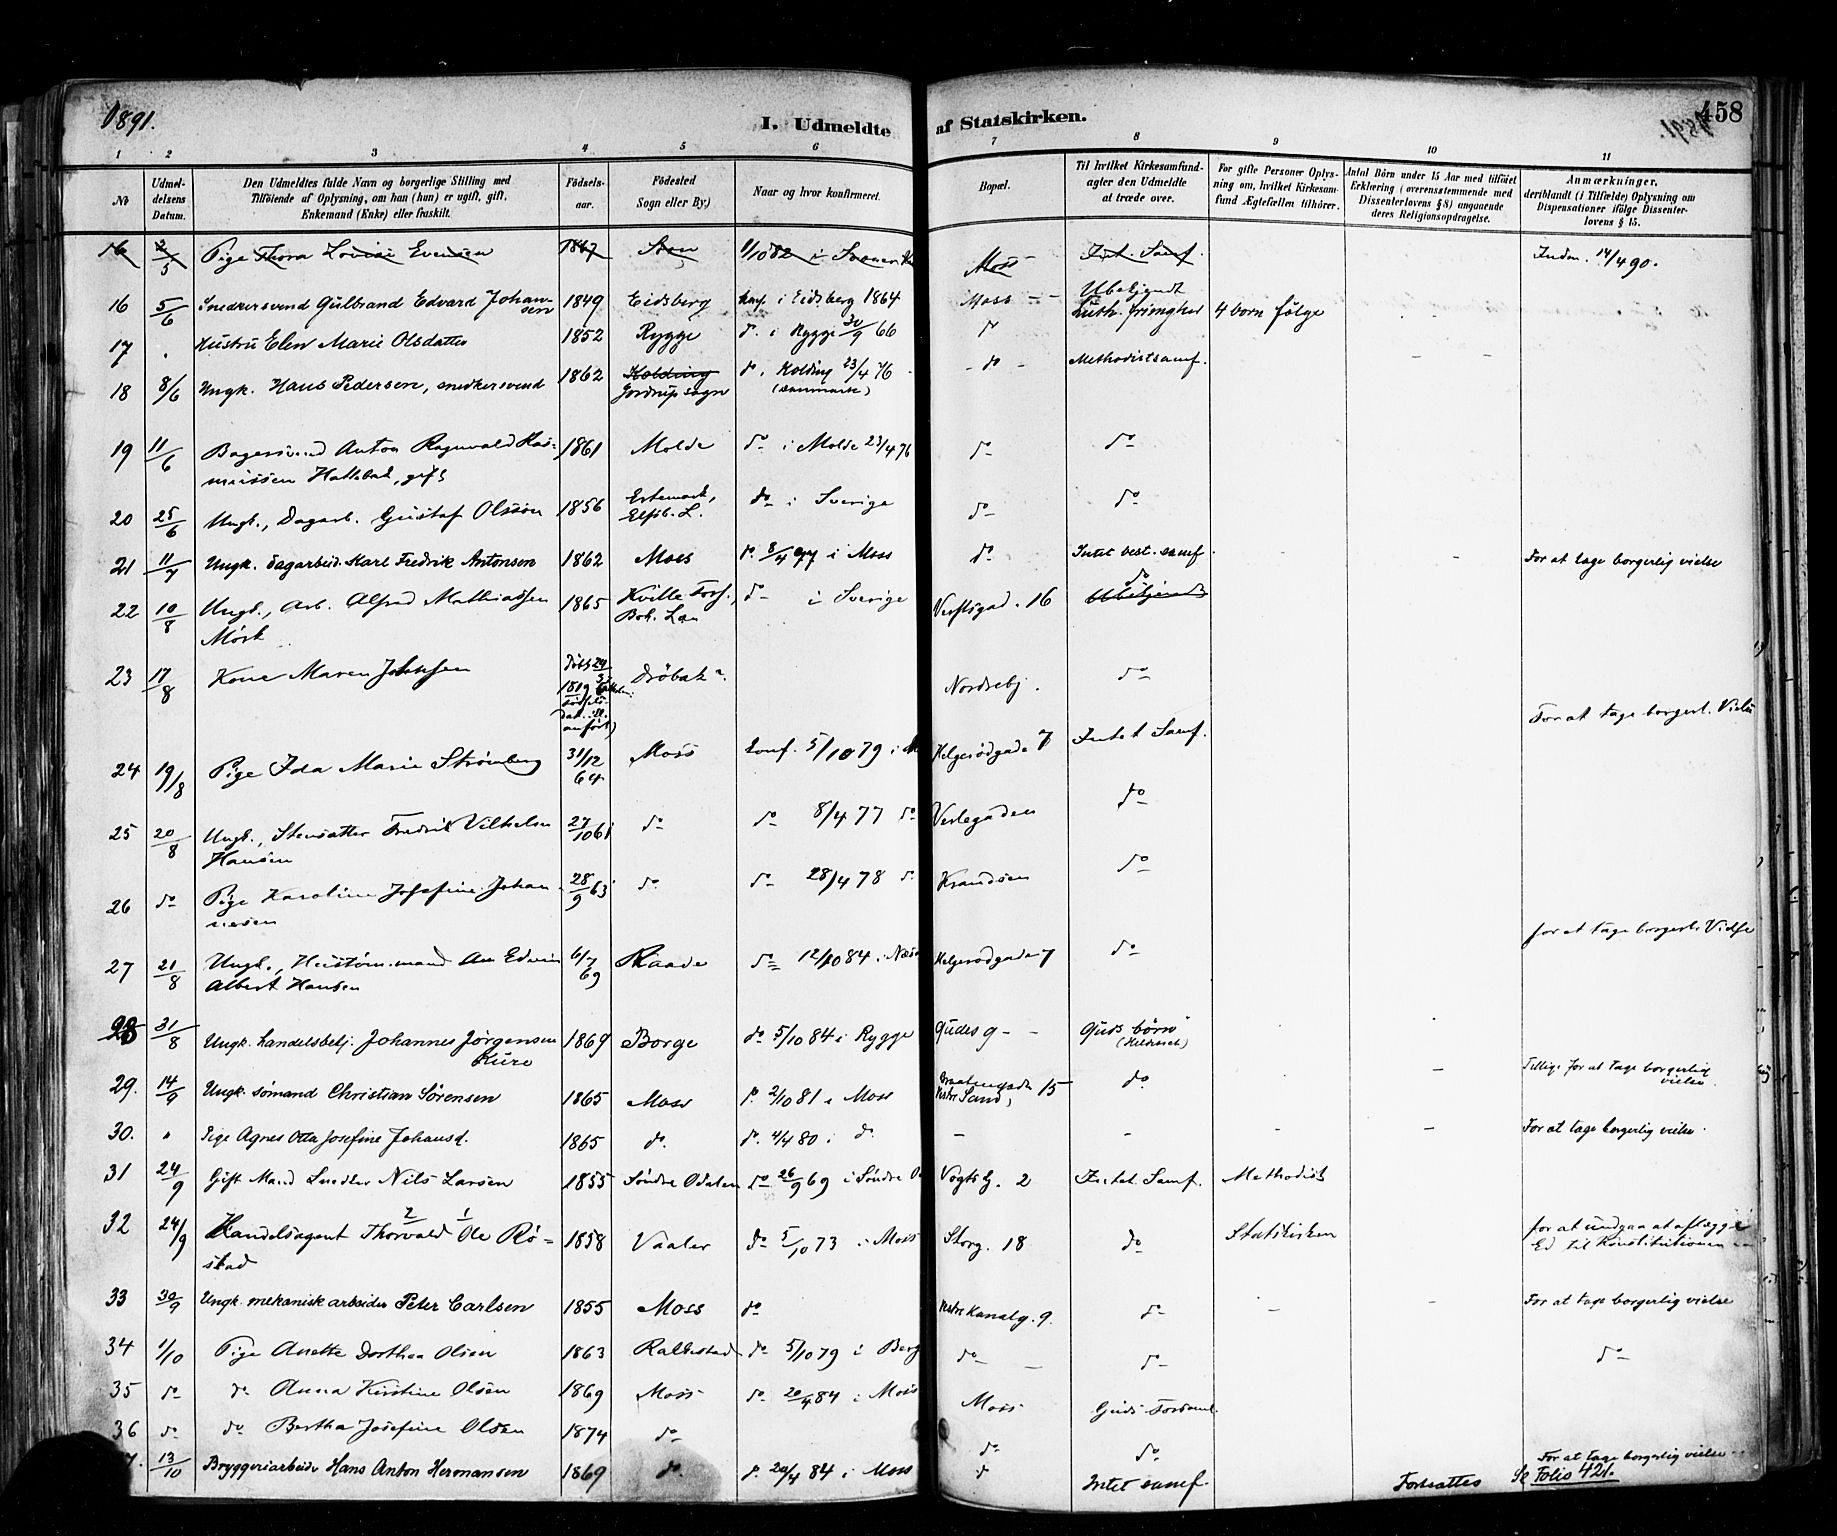 1891.
I. Udmeldte af Statskirken.
458
1 2 3 4 5 6 7 8 9 10 11
No
Udmeldelsens Datum.
Den Udmeldtes fulde Navn og borgerlige Stilling med Tilföiende af Oplysning, om han (hun) er ugift, gift, Enkemand (Enke) eller fraskilt.
Födselsaar.
Födested Sogn eller By.)
Naar og hvor konfirmeret.
Bopæl.
Til hvilket Kirkesamfund agter den Udmeldte at træde over.
For gifte Personer Oplysning om, hvilket Kirkesamfund Ægtefællen tilhörer.
Antal Börn under 15 Aar med tilföiet Erklæring (overensstemmende med Dissenterlovens § 8) angaaende deres Religionsopdragelse.
Anmærkninger, deriblandt (i Tilfælde) Oplysning om Dispensationer ifölge Dissenterlovens § 15.
16 2/5 Pige Thora Lovise Evensen 1867 Moss Int. Samf. Inden. 14/4 90.
16 5/6 Snedkersvend Gulbrand Edvard Johansen 1849 Eidsberg konf. i Eidsberg 1864 Moss Ubekjendt Luth. frimghed 4 born følge
17 " Hustru Elen Marie Olsdatter 1852 Rygge do. i Rygge 30/9 66 do
18 8/6 Ungk. Hans Pedersen, snedkersvend 1862 Kolding Gordrup sogn do. Kolding 23/4 76 (Danmark) do Methodistsamf.
19 11/6 Bagersvend Anton Ragnvald Rasmussen Hattebak, gift 1861 Molde do i Molde 23/4 76 do do
20 25/6 Ungk., Dagarb. Gustaf Olsson 1856 Elfsb. L. do i Sverige do do
21 11/7 Ungk. dagarbeid. Karl Fredrik Antonsen 1862 Moss do. 8/4 77 i Moss do Intet best. samf. For at tage borgerlig vielse
22 10/8 Ungk., Arb. Alfred Mathiassen Mörk 1865 Kville Fors., Boh. Län do i Sverige Verftsgad. 16 do Ubekjendt
23 17/8 Kone Maren Johnsen 1819 Dröbak Nordrebj. do
24 19/8 Pige Ida Marie Strömberg 31/12 64 Moss konf. 5/10 79 i M Helgerödgade 7 Intet Samf. For at tage borgerl. Vielse
25 20/8 Ungk., Stensætter Fredrik Vilhelm Hansen 27/10 61 do do 8/4 77 do Verlegaden do
26 do Pige Karoline Josefine Johannesen 28/9 63 do do 28/4 78 do Krandsen do
27 21/8 Ungk., Edwin Albert Hansen 6/7 69 Raade do 12/10 84 Helgerødgade 7 do for at tage borgerl. Vielse
28 31/8 Ungk. handelsbetj. Johannes Jörgensen Kure 1869 Borge do 5/10 84 i Rygge Gudes g Guds börn"
29. 14/9 Ungk. sömand Christian Sörensen 1865 Moss do. 2/10 81 i Moss 15 do Tillige for at tage borgerlig vielse.
30. " Pige Agnes Otta Josefine Johansd. 1865 do. do. 4/4 80 i do. For at tage borgerlig vielse.
31 24/9 Gift Mand Snedker Nils Larsen 1855 Söndre Odalen do 26/9 69 i Söndre O Vogts G. 2 Intet Samf. Methodist
32 24/9 Handelsagent Thorvald 2 Ole 1 Röstad 1858 Vaaler do 5/10 73 i Moss Storg. 18 do Statskirken for at undgaa at aflægge Ed til Konstitutionen
33 30/9 Ungk. mekanisk arbeider Peter Carlsen 1855 Moss do Vestre Kanalg. 9. do For at tage borgerlig vielse
34 1/10 Pige Anette Dorthea Olsen 1863 Rakkestad do 5/10 79 i Berg do do do
35 do do Anna Kirstine Olsen 1869 Moss do 20/4 84 i Moss Moss Guds Forsaml.
36 do do Bertha Josefine Olsen 1874 do do do
7. 13/10 Bryggeriarbeider Hans Anton Hermansen 1869 do. do. 20/4 84 i Moss do Intet samf. For at tage borgerlig vielse
Fortsættes Se Folio 421.